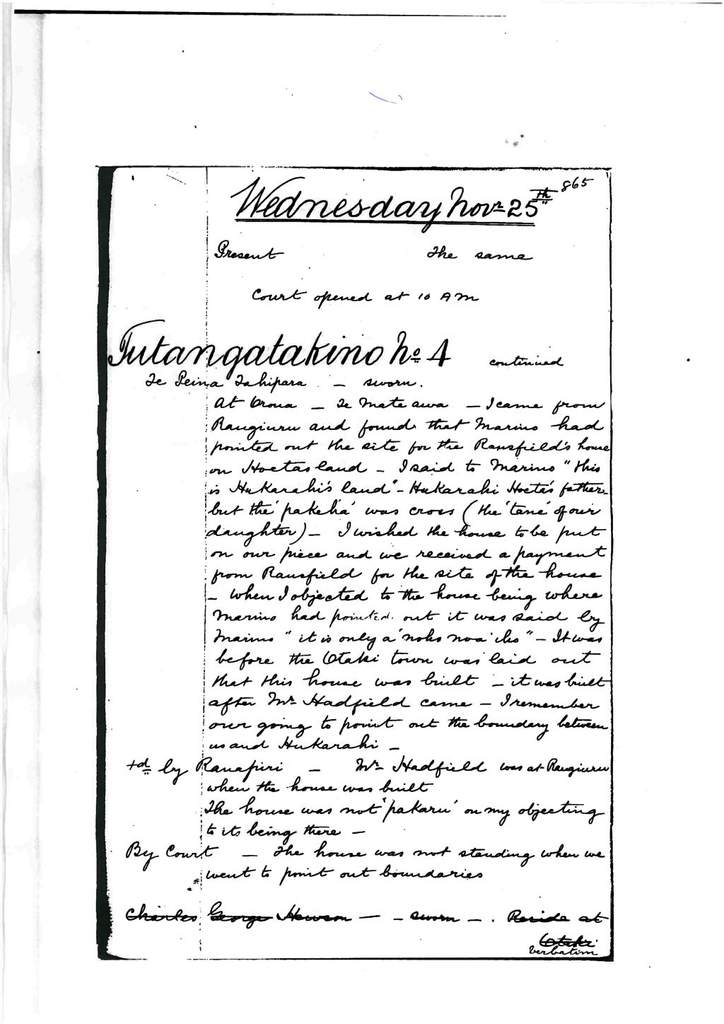 865
Wednesday Novr 25th
Present The same
Court opened at 10 A m
Tutangatakino No 4 continued
Te Peina Tahipara - sworn.
At Oroua - Te Mate awa - I came from
Rangiuru and found that Marino had
pointed out the site for the Ransfield's house
on Hoetas land - I said to Marino "this
is Hukarahi's land" - Hukarahi Hoeta's father
but the 'pakeha' was cross (the 'tane' of our
daughter) - I wished the house to be put
on our piece and we received a payment
from Ransfield for the site of the house
- When I objected to the house being where
Marino had pointed out it was said by
Marino "it is only a 'noho noa iho" - It was
before the Otaki town was laid out
that this house was built - it was built
after Mr Hadfield came - I remember
our going to point out the boundary between
us and Hukarahi -
+d by Ranapiri - Mr Hadfield was at Rangiuru
when the house was built
The house was not 'pakaru' on my objecting
to its being there -
By Court - The house was not standing when we
went to point out boundaries
Charles George Hewson - - sworn - . Reside at
Otaki
verbatim